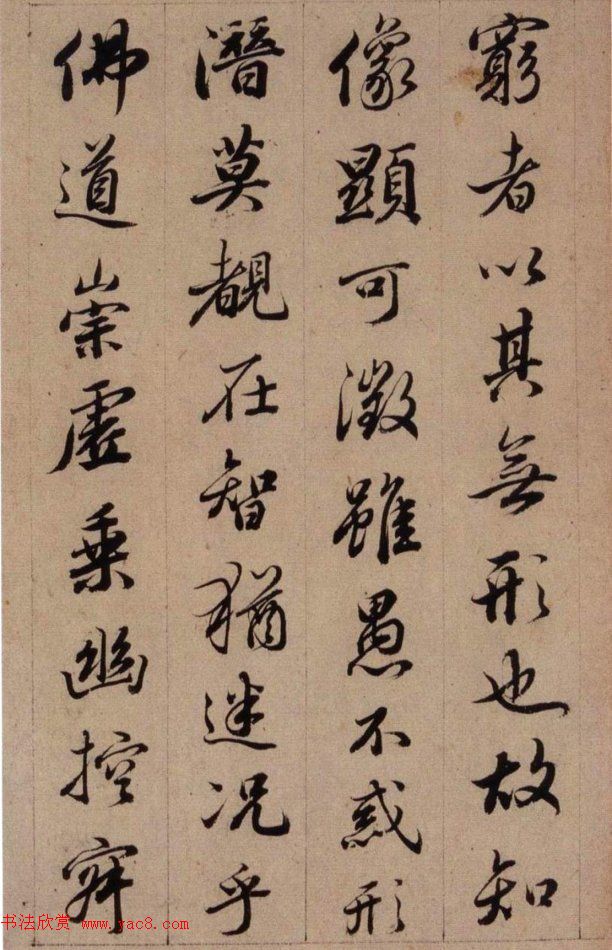 窮者以其無形也故知
像顯可徵雖愚不惑形
潛莫覩在智猶迷况乎
佛道崇虛乗幽控寂
书法欣赏 www.yac8.com